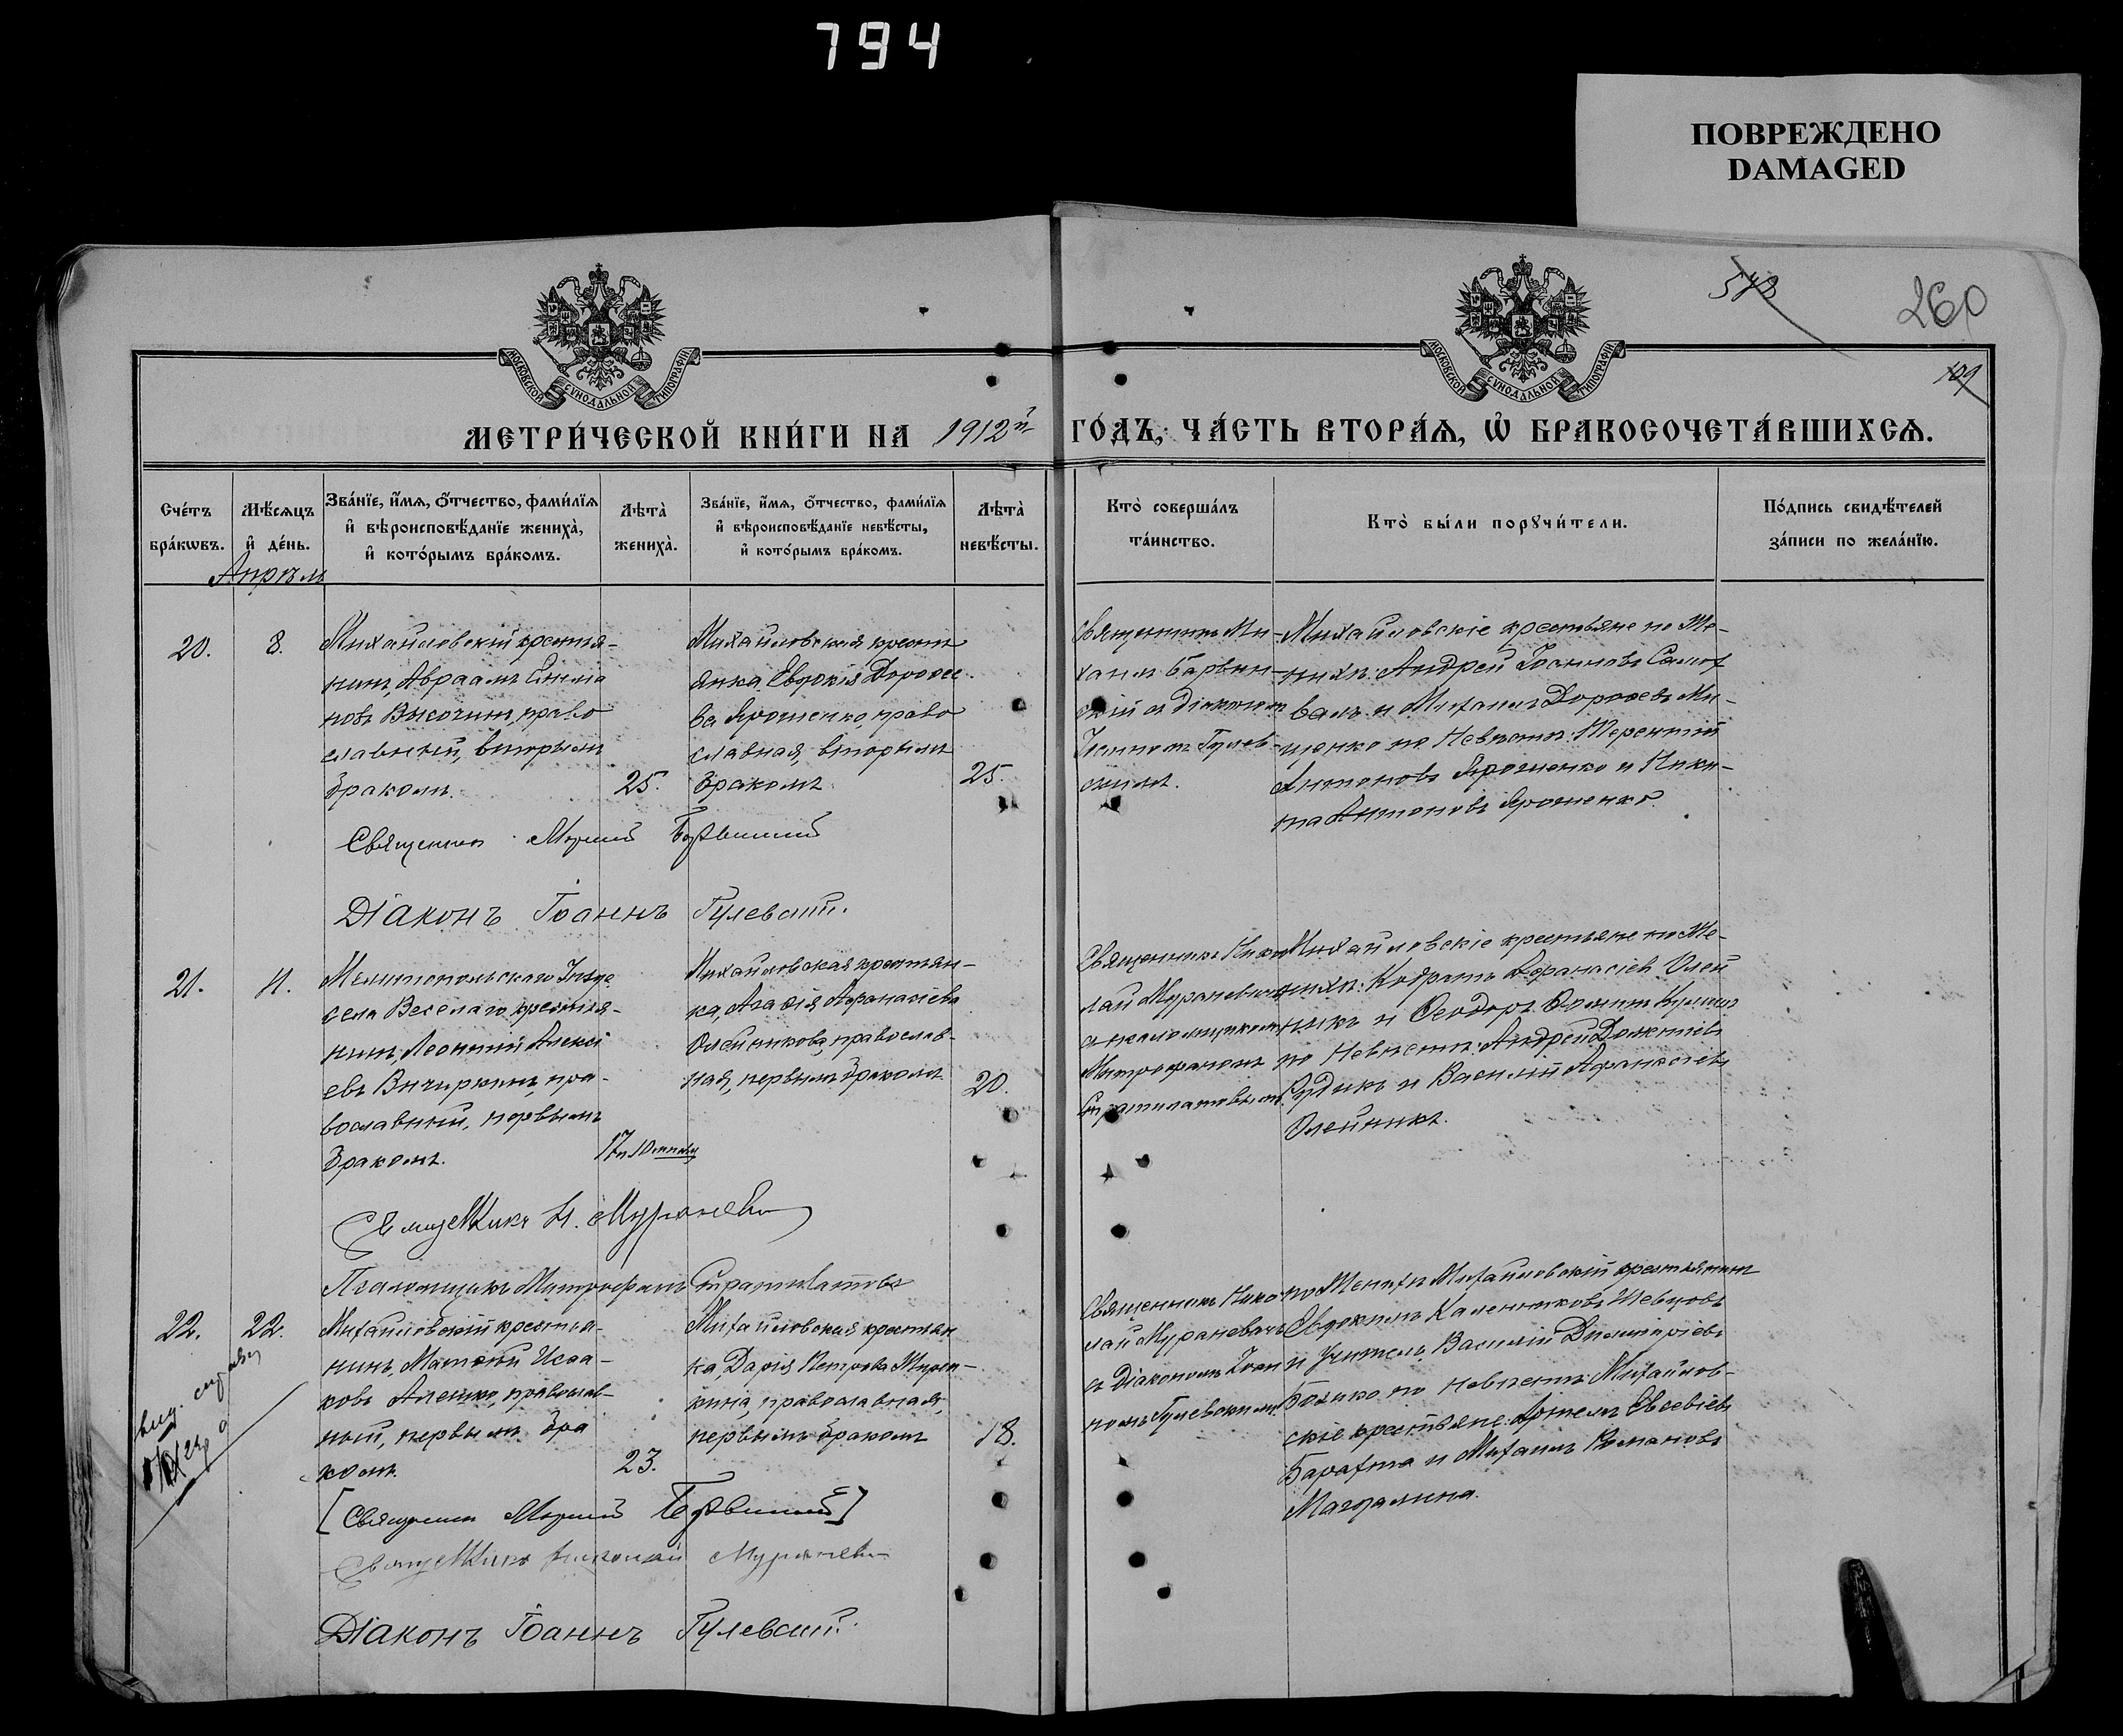 794
ПОВРЕЖДЕНО
DAMAGED
573
260
109
МОСКОВСКОЙ СѴНОДАЛЬНОЙ ТИПОГРАФІИ
МОСКОВСКОЙ СѴНОДАЛЬНОЙ ТИПОГРАФІИ
МЕТРИ́ЧЕСКОЙ КНИ́ГИ НА 1912й ГО́ДЪ, ЧА́СТЬ ВТОРА́Ѧ, Ѡ҆ БРАКОСОЧЕТА́ВШИХСѦ.
Сче́тъ бра́кѡвъ.
Мѣ́сѧцъ и҆ де́нь.
Зва́нїе, и҆́мѧ, ѻ҆́тчество, фами́лїѧ и҆ вѣроисповѣ́данїе жениха̀, и҆ кото́рымъ бра́комъ.
Лѣта̀ жениха̀.
Зва́нїе, и҆́мѧ, ѻ҆́тчество, фами́лїѧ и҆ вѣроисповѣ́данїе невѣ́сты, и҆ кото́рымъ бра́комъ.
Лѣта̀ невѣ́сты.
Кто̀ соверша́лъ та́инство.
Кто̀ бы́ли порꙋчи́тели.
По́дпись свидѣ́телей за́писи по жела́нїю.
Апрѣль
20.
8.
Михайловскій крестья-
нинъ, Авраамъ
новъ Высочинъ, право
славный, вторымъ
бракомъ.
25.
Михайловская крестья
янка Евдокія Дорофее
ва Ярошенко, право
славная, вторымъ
бракомъ
25.
Священникъ Ми-
хаилъ Барвин-
скій съ діакономъ
Іоанномъ Гулев-
скимъ.
Михайловскіе крестьяне по Же-
нихѣ: Андрей Іоанновъ
валъ и Михаилъ Дорофеевъ Ми-
щенко по Невѣстѣ: Терентій
Антоновъ Ярошенко и Ники-
та Антоновъ Ярошенко.
Священникъ Барвинскій
Діаконъ Іоаннъ Гулевскій.
21.
Мелитопольскаго уѣзда
села Веселаго, крестья-
нинъ, Леонтій Алексі
евъ Вичиркинъ, пра-
вославный, первымъ
бракомъ.
Михайловская крестьян-
ка, Агафія Афанасіева
Олейникова, православ-
ная, первымъ бракомъ
20.
Священникъ Нико
лай Мураневичъ
съ псаломщикомъ
Митрофаномъ
Стратилатовымъ.
Михайловскіе крестьяне по Же-
нихѣ: Кодратъ Афанасіевъ Олей
никъ и Феодоръ
по Невѣстѣ: Андрей
Рудикъ и Василій Афанасіевъ
Олейникъ.
Священникъ Н. Мураневичъ
Псаломщикъ Митрофанъ Стратилатовъ
22.
22.
Михайловскій крестья-
нинъ, Матѳей Исаа-
ковъ Алешко, православ-
ный, первымъ бра
комъ.
23.
Михайловская крестьян
ка, Дарія Петрова Мирош-
кина, православная,
первымъ бракомъ
18.
Священникъ Нико
лай Мураневичъ
съ діакономъ Іоан
номъ Гулевскимъ.
по Женихѣ Михайловскій крестьянинъ
Евдокимъ Каленниковъ Шевцовъ
и учитель, Василій Димитріевъ
Божко по невѣстѣ Михайлов-
скіе крестьяне: Артемъ Евсевіевъ
Барахта и Михаилъ Романовъ
Магдалина.
[Священникъ Барвинскій]
Священникъ Николай Мураневичъ
Діаконъ Іоаннъ Гулевскій.